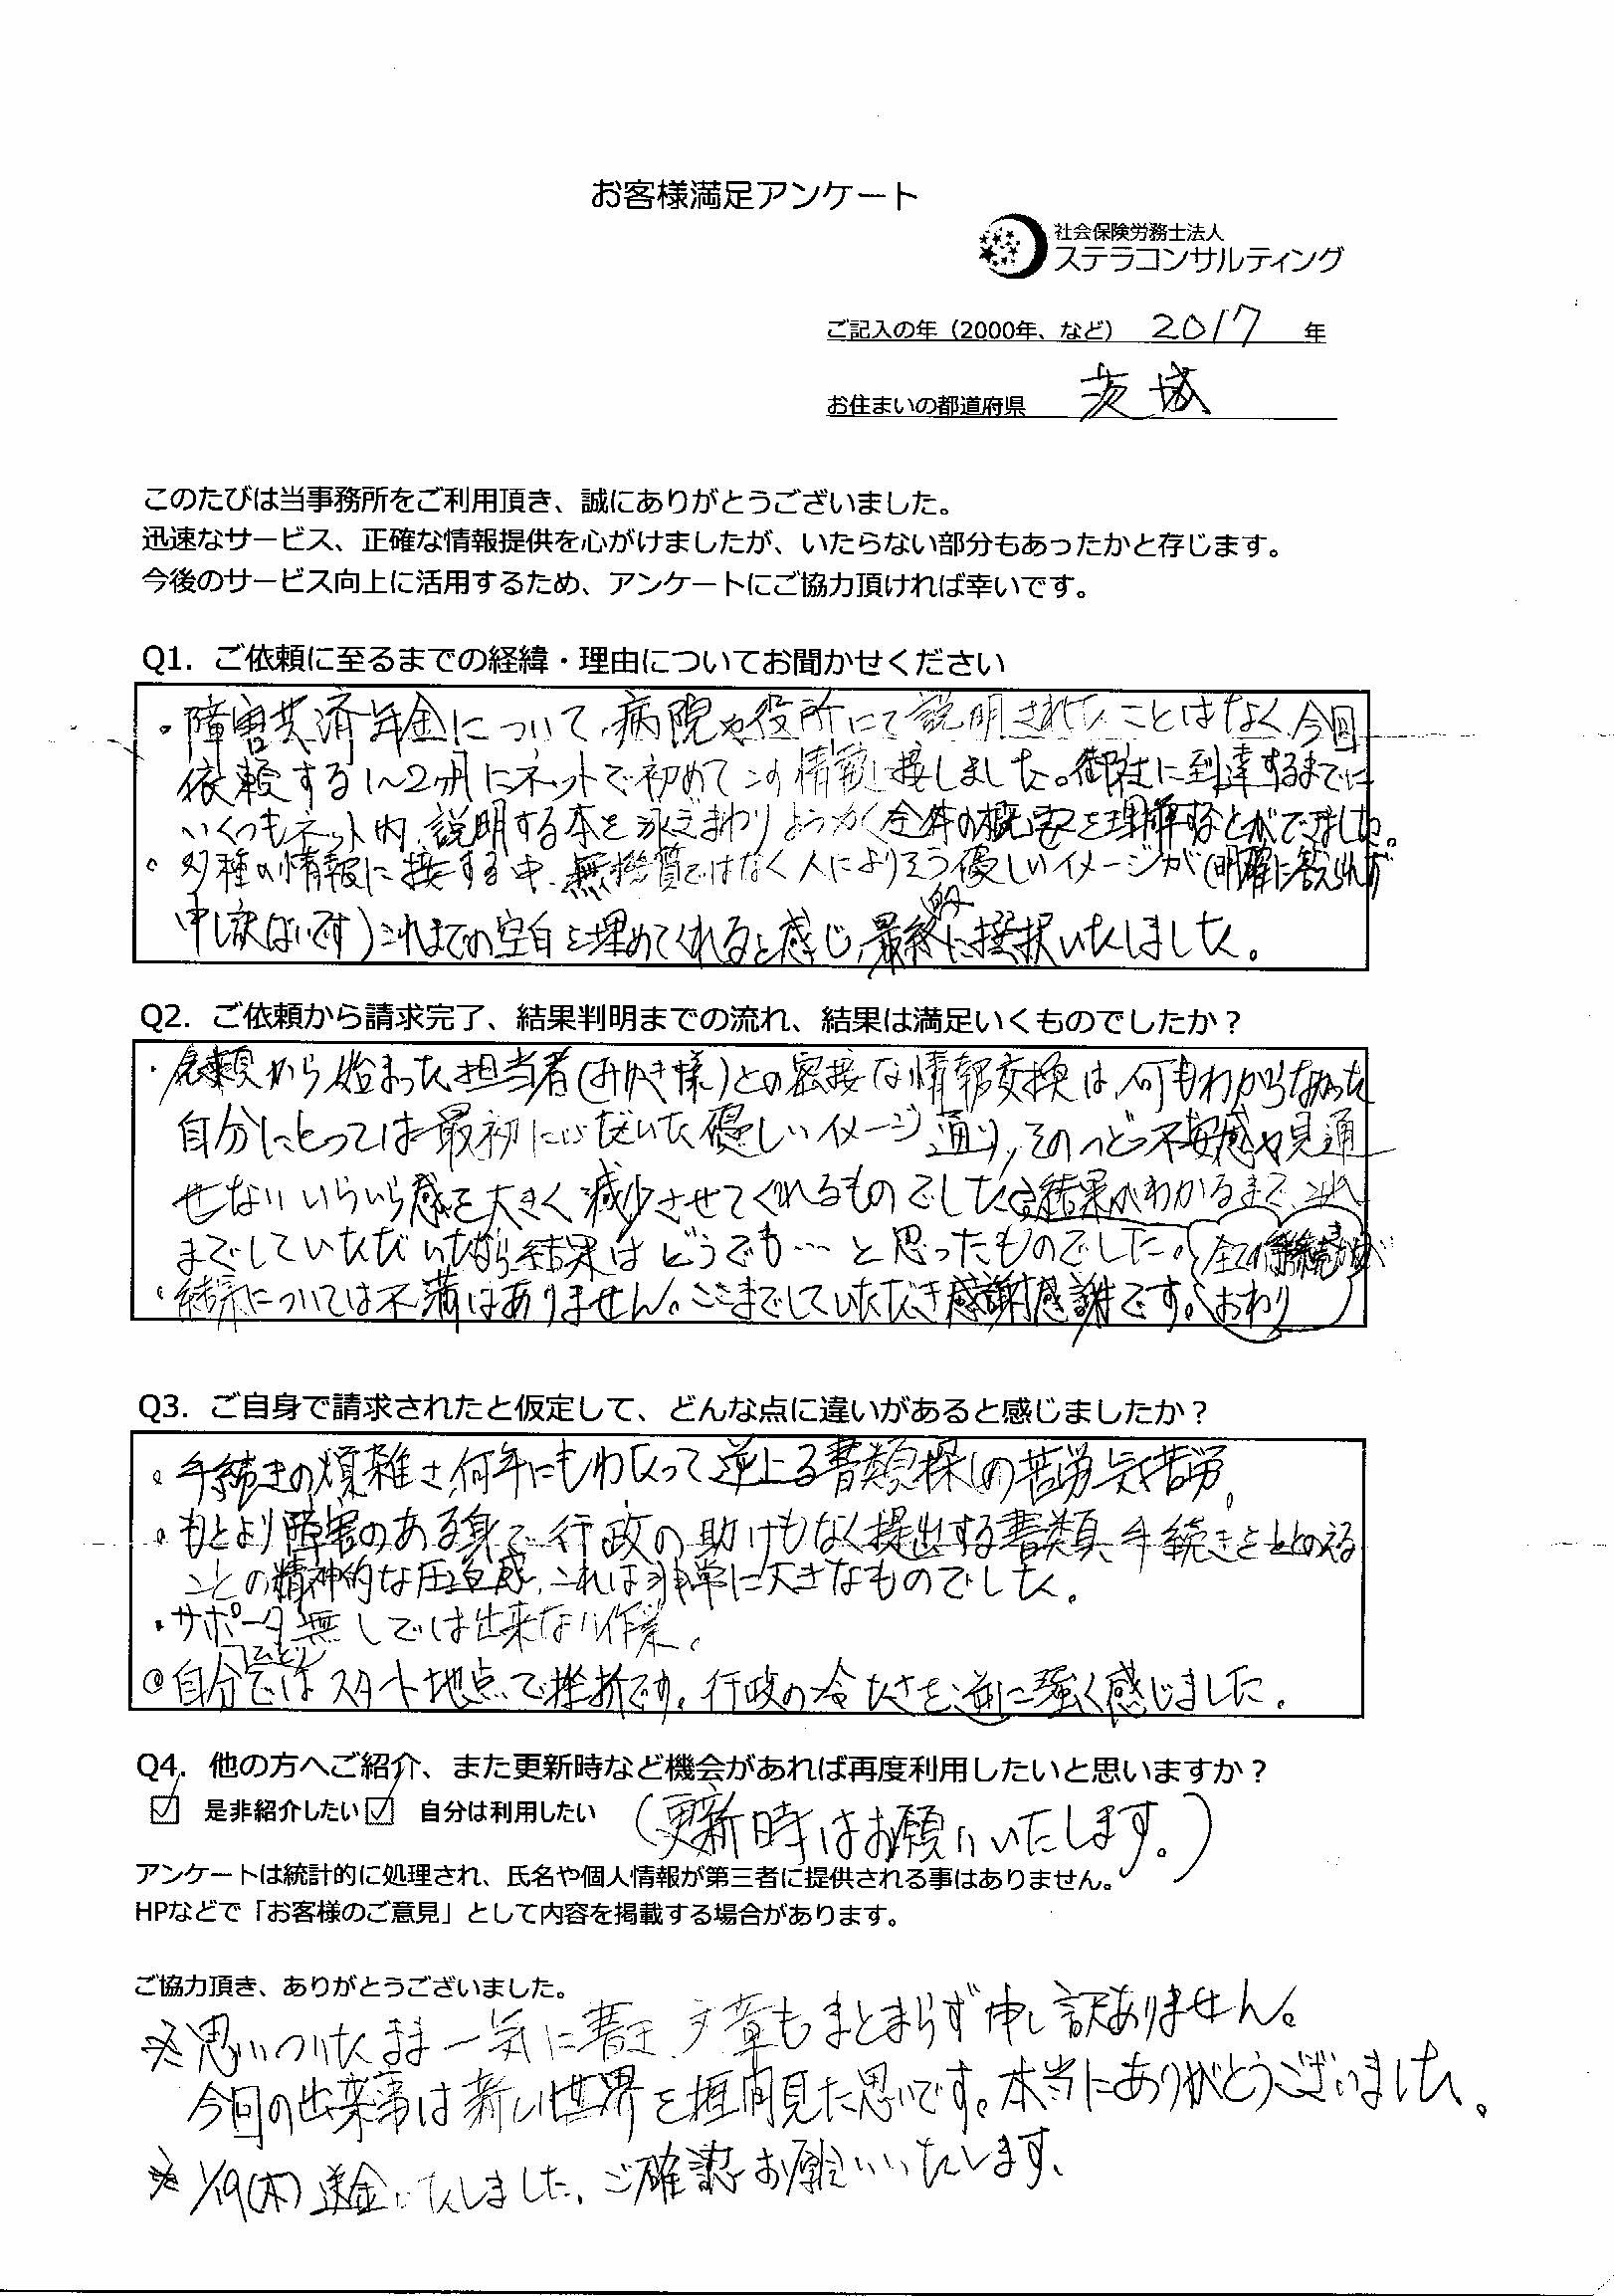 お客様満足アンケート
社会保険労務士法人
ステラコンサルティング
ご記入の年（2000年、など） 2017 年
お住まいの都道府県 茨城
このたびは当事務所をご利用頂き、誠にありがとうございました。
迅速なサービス、正確な情報提供を心がけましたが、いたらない部分もあったかと存じます。
今後のサービス向上に活用するため、アンケートにご協力頂ければ幸いです。
Q1. ご依頼に至るまでの経緯・理由についてお聞かせください
・障害共済年金について、病院や役所にて説明されたことはなく、今回
依頼する1〜2ヶ月にネットで初めてこの情報に接しました。御社に到達するまでに
いくつもネット内、説明する本を よみまわり ようやく全体の概要を理解することができました。
・多種の情報に接する中、無機質ではなく人によりそう優しいイメージが(明確に答えられず
申し訳ないです)これまでの空白を埋めてくれると感じ、最終的に選択いたしました。
Q2. ご依頼から請求完了、結果判明までの流れ、結果は満足いくものでしたか？
・依頼から始まった担当者(みゆき様)との密接な情報交換は、何もわからなかった
自分にとっては最初に心にだいた優しいイメージ通り、そのつどつど不安感や見通
せないいらいら感を大きく減少させてくれるものでした。結果がわかるまで、これ
までしていただいたなら結果はどうでも…と思ったものでした。(全ての手続きが
・結果については不満はありません。ここまでしていただき感謝感謝です。 おわり
Q3. ご自身で請求されたと仮定して、どんな点に違いがあると感じましたか？
・手続きの煩雑さ、何年にもわたって逆上る書類探しの苦労気苦労。
・もとより障害のある身で行政の助けもなく提出する書類、手続きをととのえる
ことの精神的な圧迫感、これは非常に大きなものでした。
・サポータ無しでは出来ない作業。
◎自分ひとりではスタート地点で挫折です。行政の冷たさを逆に強く感じました。
Q4. 他の方へご紹介、また更新時など機会があれば再度利用したいと思いますか？
☑ 是非紹介したい ☑ 自分は利用したい (更新時はお願いいたします。)
アンケートは統計的に処理され、氏名や個人情報が第三者に提供される事はありません。
HPなどで「お客様のご意見」として内容を掲載する場合があります。
ご協力頂き、ありがとうございました。
※思いついたまま一気に書き、文章もまとまらず申し訳ありません。
今回の出来事は新しい世界を垣間見た思いです。本当にありがとうございました。
※1/19(木)送金いたしました。ご確認お願いいたします。